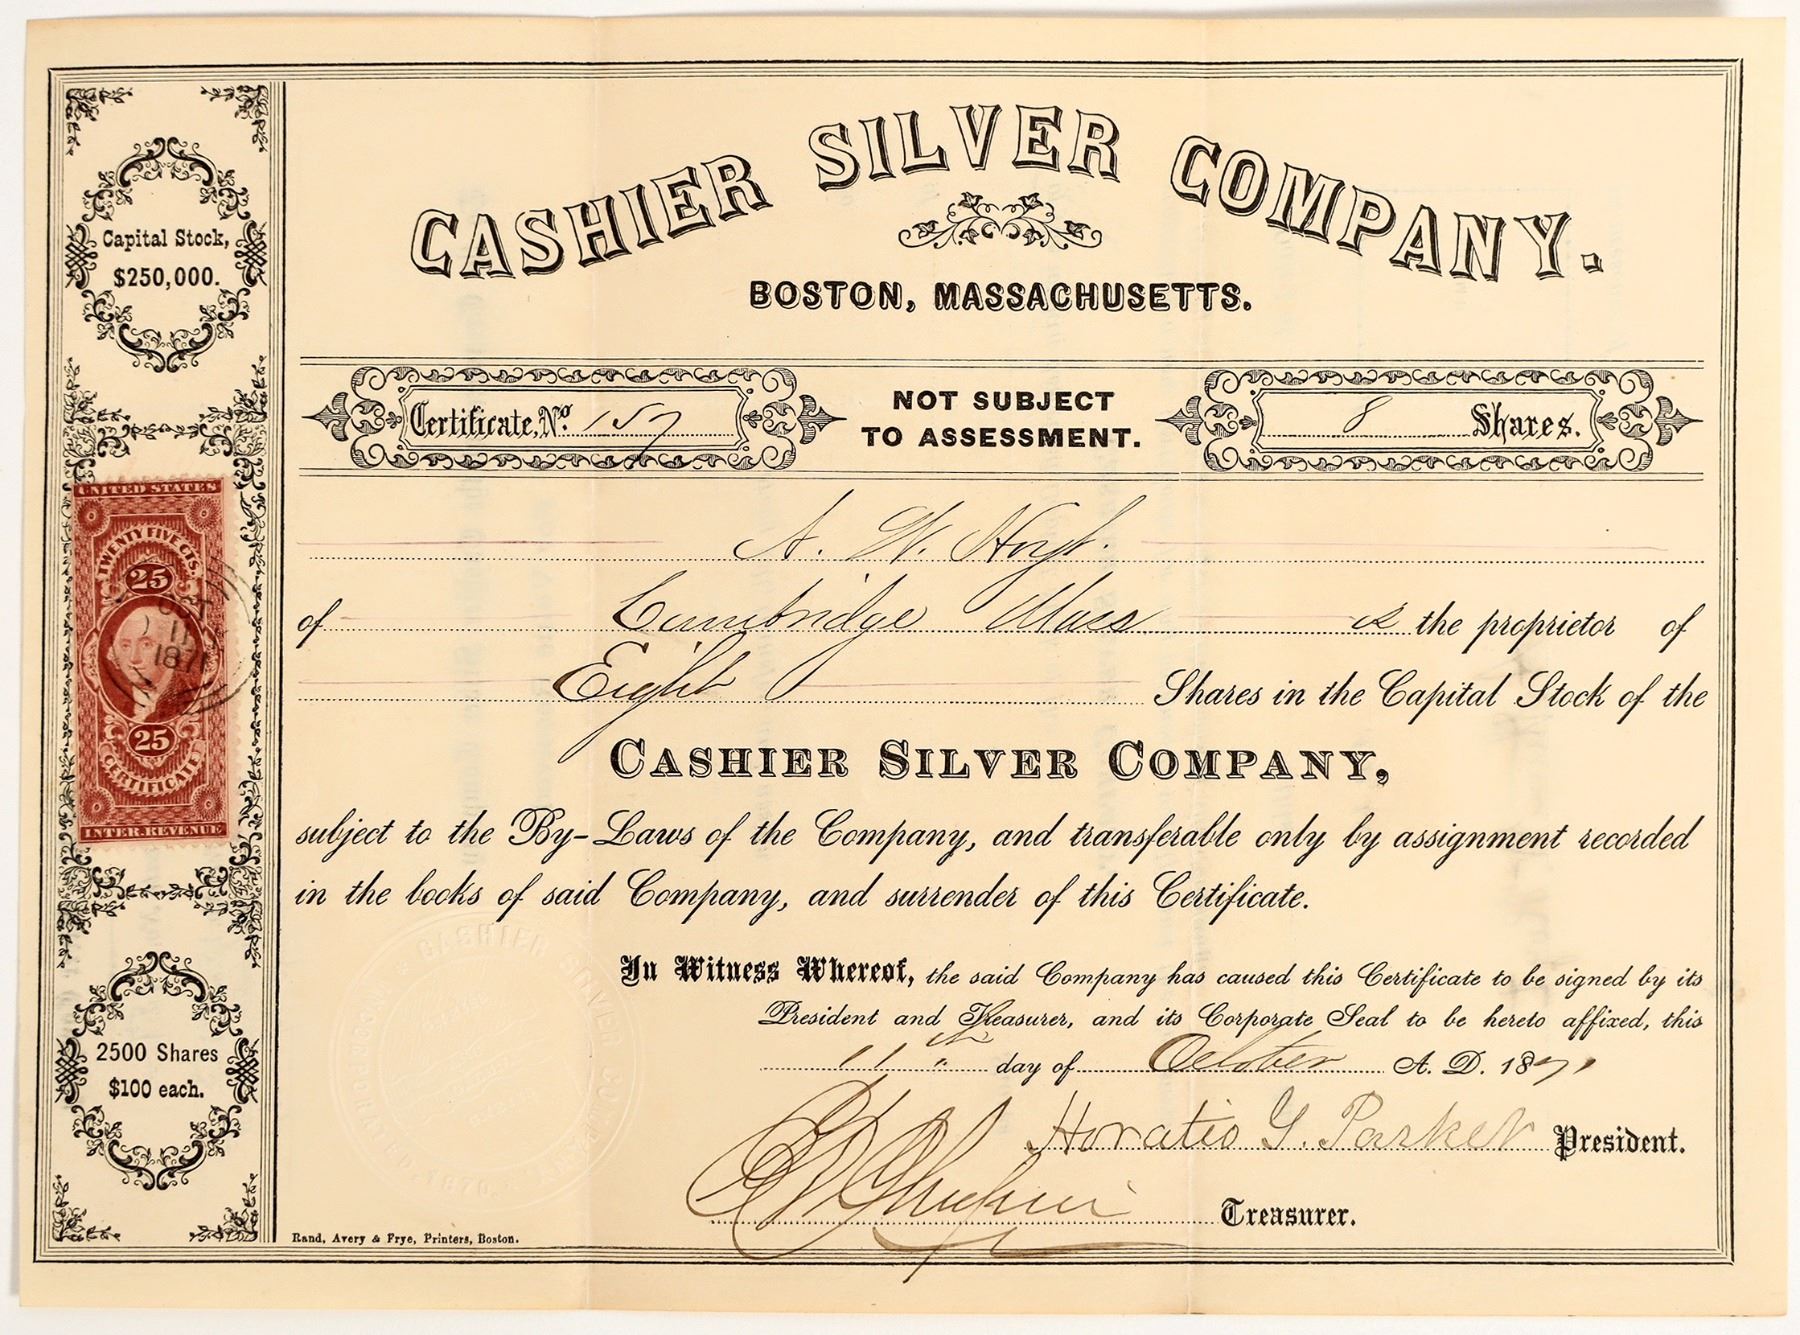 CASHIER SILVER COMPANY.
BOSTON, MASSACHUSETTS.
Capital Stock,
$250,000.
Certificate, No. 157
NOT SUBJECT
TO ASSESSMENT.
8 Shares.
UNITED STATES
TWENTY FIVE CTS.
25
OCT
11
1871
25
CERTIFICATE
INTER. REVENUE
A. W. Hoyt.
of Cambridge Mass is the proprietor of
Eight Shares in the Capital Stock of the
CASHIER SILVER COMPANY,
subject to the By-Laws of the Company, and transferable only by assignment recorded
in the books of said Company, and surrender of this Certificate.
In Witness Whereof, the said Company has caused this Certificate to be signed by its
President and Treasurer, and its Corporate Seal to be hereto affixed, this
11th day of October A. D. 1871
2500 Shares
$100 each.
CASHIER SILVER COMPANY
INCORPORATED. 1870
Horatio G. Parker President.
Treasurer.
Rand, Avery & Frye, Printers, Boston.